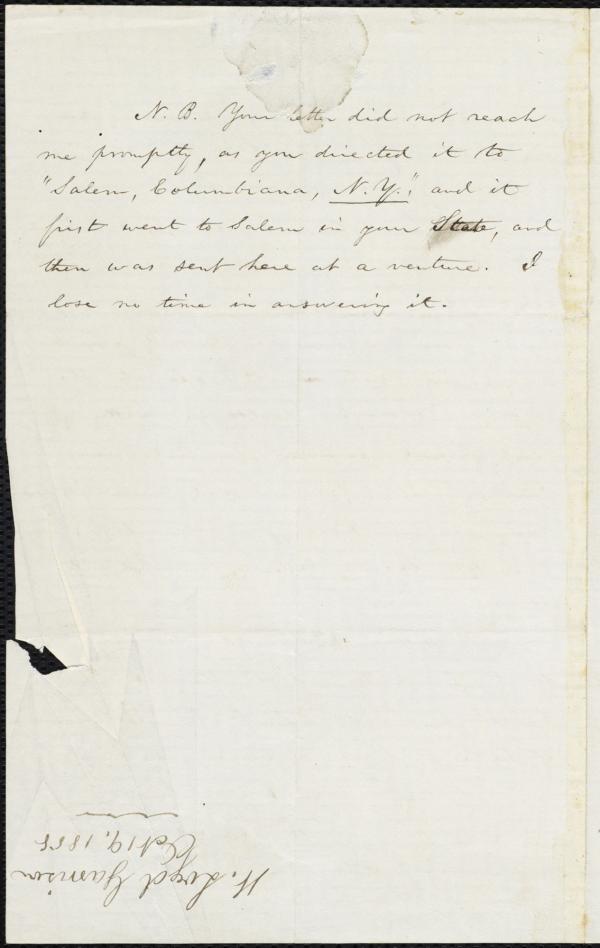 N. B. Your letter did not reach
me promptly, as you directed it to
"Salem, Columbiana, N. Y.", and it
first went to Salem in your State, and
then was sent here at a venture. I
lose no time in answering it.
W. Lloyd Garrison
Oct 19, 1858